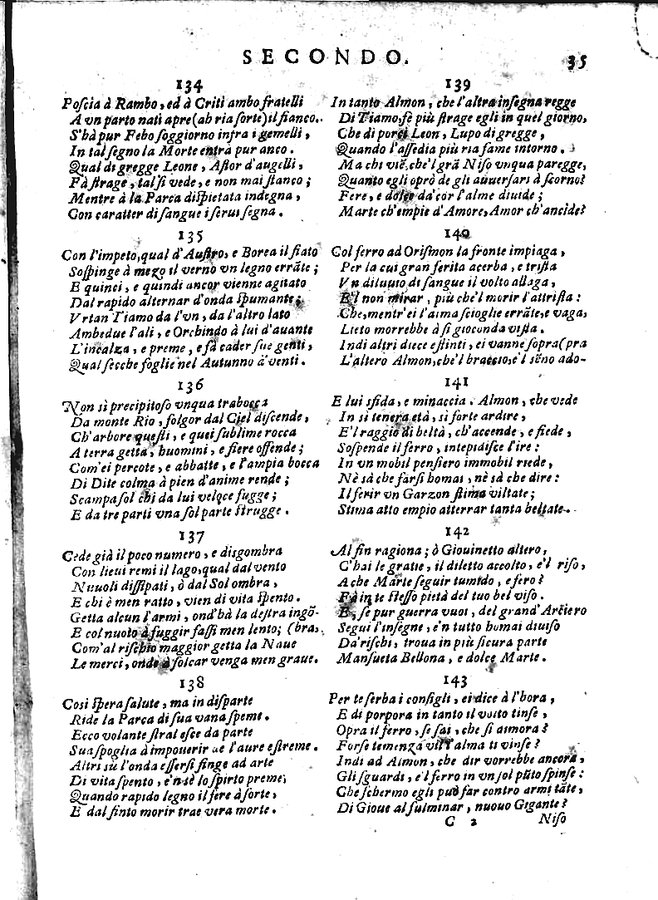 SECONDO. 35
134
Poscia à Rambo, ed à Criti ambo fratelli
A vn parto nati apre (ab ria sorte) il fianco.
S'hà pur Febo soggiorno infra i gemelli,
In tal segno la Morte entra pur anco.
Qual di gregge Leone, Astor d'augelli,
Fà strage, tal si vede, e non mai stanco;
Mentre à la Parca dispietata indegna,
Con caratter di sangue i serui segna.
135
Con l'impeto, qual d'Austro, e Borea il fiato
Sospinge à mezo il verno vn legno errāte;
E quinci, e quindi ancor vienne agitato
Dal rapido alternar d'onda spumante;
Vrtan Tiamo da l'vn, da l'altro lato
Ambedue l'ali, e Orchindo à lui d'auante
L'incalza, e preme, e fà cader sue genti,
Qual secche foglie nel Autunno à venti.
136
Non sì precipitoso vnqua trabocca
Da monte Rio, folgor dal Ciel discende,
Ch'arbore questi, e quei sublime rocca
A terra getta, huomini, e fiere offende;
Com'ei percote, e abbatte, e l'ampia bocca
Di Dite colma à pien d'anime rende;
Scampa sol chi da lui veloce fugge;
E da tre parti vna sol parte strugge.
137
Cede già il poco numero, e disgombra
Con lieui remi il lago, qual dal vento
Nuuoli dissipati, ò dal Sol ombra,
E chi è men ratto, vien di vita spento.
Getta alcun l'armi, ond'hà la destra ingō-
E col nuoto à fuggir fassi men lento; (bra,
Com'al rischio maggior getta la Naue
Le merci, onde à solcar venga men graue.
138
Così spera salute, ma in disparte
Ride la Parca di sua vana speme.
Ecco volante stral esce da parte
Sua spoglia à impouerir de l'aure estreme.
Altri sù l'onda essersi finge ad arte
Di vita spento, e n'esè lo spirto preme;
Quando rapido legno il fere à sorte,
E dal finto morir trae vera morte.
139
In tanto Almon, che l'altra insegna regge
Di Tiamo, fè più strage egli in quel giorno,
Che di porci Leon, Lupo di gregge,
Quando l'assedia più ria fame intorno.
Ma chi viè, che'l grā Niso vnqua paregge,
Quanto egli oprò de gli auuersari à scorno?
Fere, e dolce da'cor l'alme diuide;
Marte ch'empie d'Amore, Amor ch'ancide?
140
Col ferro ad Orismon la fronte impiaga,
Per la cui gran ferita acerba, e trista
Vn diluuio di sangue il volto allaga,
E'l non mirar, più che'l morir l'attrista:
Che, mentr'ei l'alma scioglie errāte, e vaga,
Lieto morrebbe à sì gioconda vista.
Indi altri diece estinti, ei vanne sopra (pra
L'altero Almon, che'l braccio, e'l seno ado-
141
E lui sfida, e minaccia. Almon, che vede
In sì tenera età, sì forte ardire,
E'l raggio di beltà, ch'accende, e fiede,
Sospende il ferro, intepidisce l'ire:
In vn mobil pensiero immobil riede,
Nè sà che farsi homai, nè sà che dire:
Il ferir vn Garzon stima viltate;
Stima atto empio atterrar tanta beltate.
142
Al fin ragiona; ò Giouinetto altero,
C'hai le gratie, il diletto accolto, e'l riso,
A che Marte seguir tumido, e fero?
Fà in te stesso pietà del tuo bel viso.
E, se pur guerra vuoi, del grand'Arciero
Segui l'insegne, e'n tutto homai diuiso
Da'rischi, troua in più sicura parte
Mansueta Bellona, e dolce Marte.
143
Per te serba i consigli, ei dice à l'hora,
E di porpora in tanto il volto tinse,
Opra il ferro, se sai, che si dimora?
Forse temenza vil l'alma ti vinse?
Indi ad Almon, che dir vorrebbe ancora,
Gli sguardi, e'l ferro in vn sol pūto spinse:
Che schermo egli può far contro armi tāte,
Di Gioue al fulminar, nuouo Gigante?
C 2 Niso